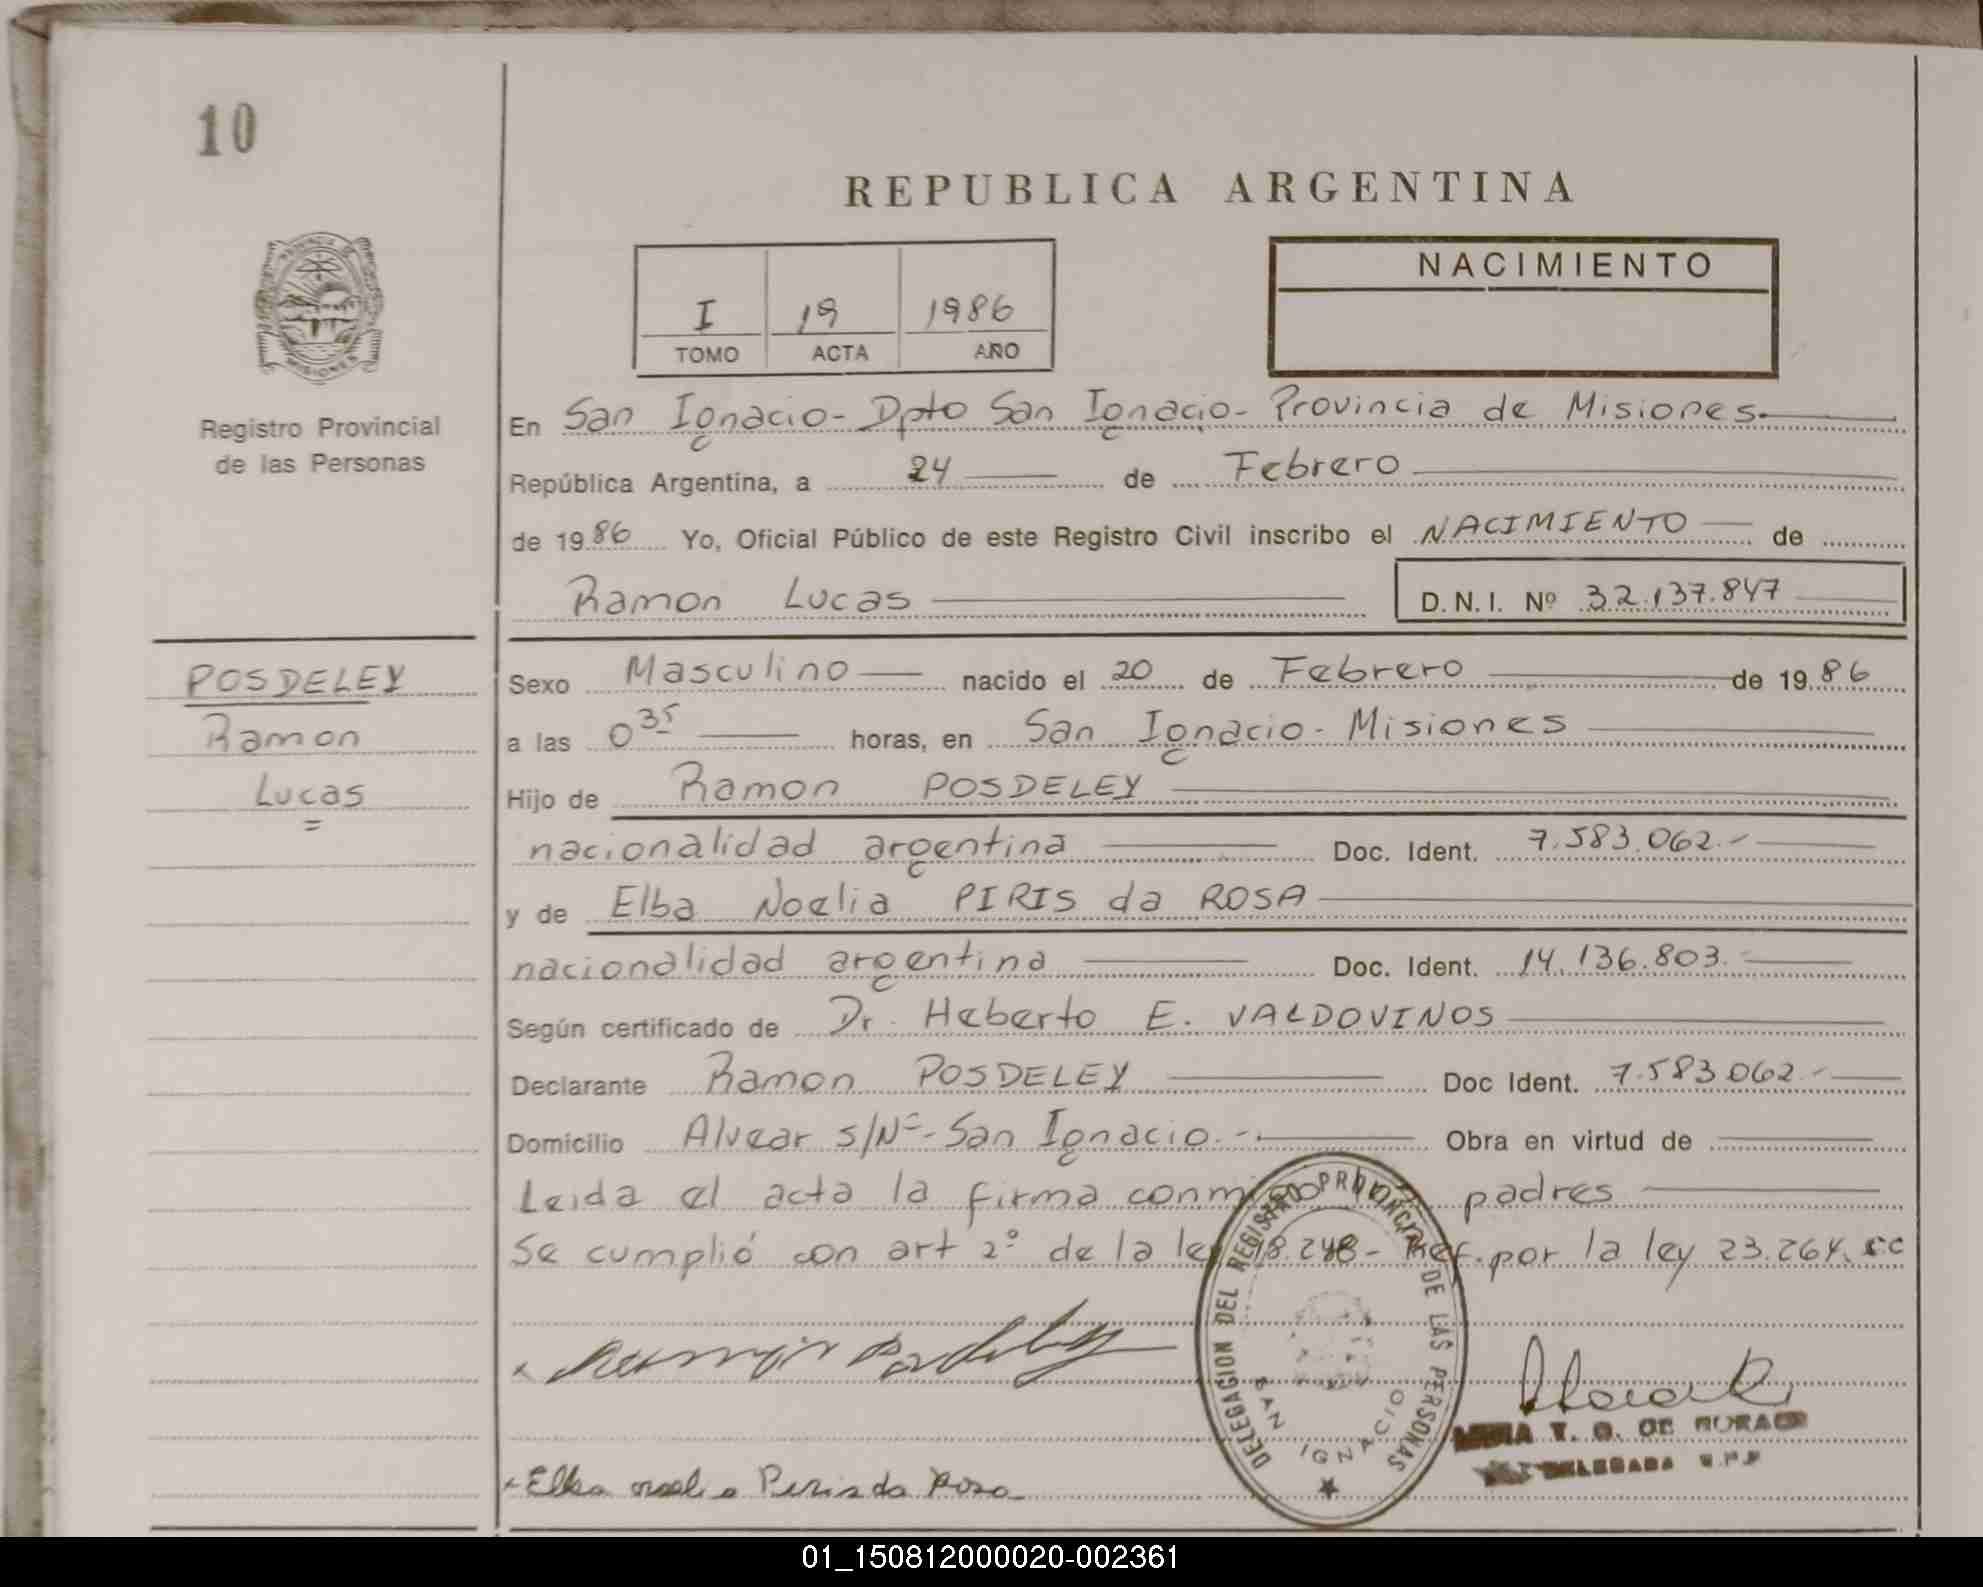 10
REPUBLICA ARGENTINA
PROVINCIA DE MISIONES
NACIMIENTO
I 19 1986
TOMO ACTA AÑO
Registro Provincial
de las Personas
En San Ignacio - Dpto San Ignacio - Provincia de Misiones.
República Argentina, a 24 de Febrero
de 1986 Yo, Oficial Público de este Registro Civil inscribo el NACIMIENTO de
Ramon Lucas D.N.I. Nº 32.137.847
POSDELEY
Ramon
Lucas
Sexo Masculino nacido el 20 de Febrero de 1986
a las 0 35 horas, en San Ignacio - Misiones
Hijo de Ramon POSDELEY
nacionalidad argentina Doc. Ident. 7.583.062.-
y de Elba Noelia PIRIS da ROSA
nacionalidad argentina Doc. Ident. 14.136.803.
Según certificado de Dr. Heberto E. VALDOVINOS
Declarante Ramon POSDELEY Doc Ident. 7.583.062.-
Domicilio Alvear S/Nº - San Ignacio.- Obra en virtud de
Leida el acta la firma conmigo padres
Se cumplió con art 2º de la ley 18.248 - Ref. por la ley 23.264.
DELEGACION DEL REGISTRO PROVINCIAL DE LAS PERSONAS
SAN IGNACIO
T. G. DE MORAES
DELEGADA R.P.P.
Elba Noelia Piris da Rosa
01_150812000020-002361